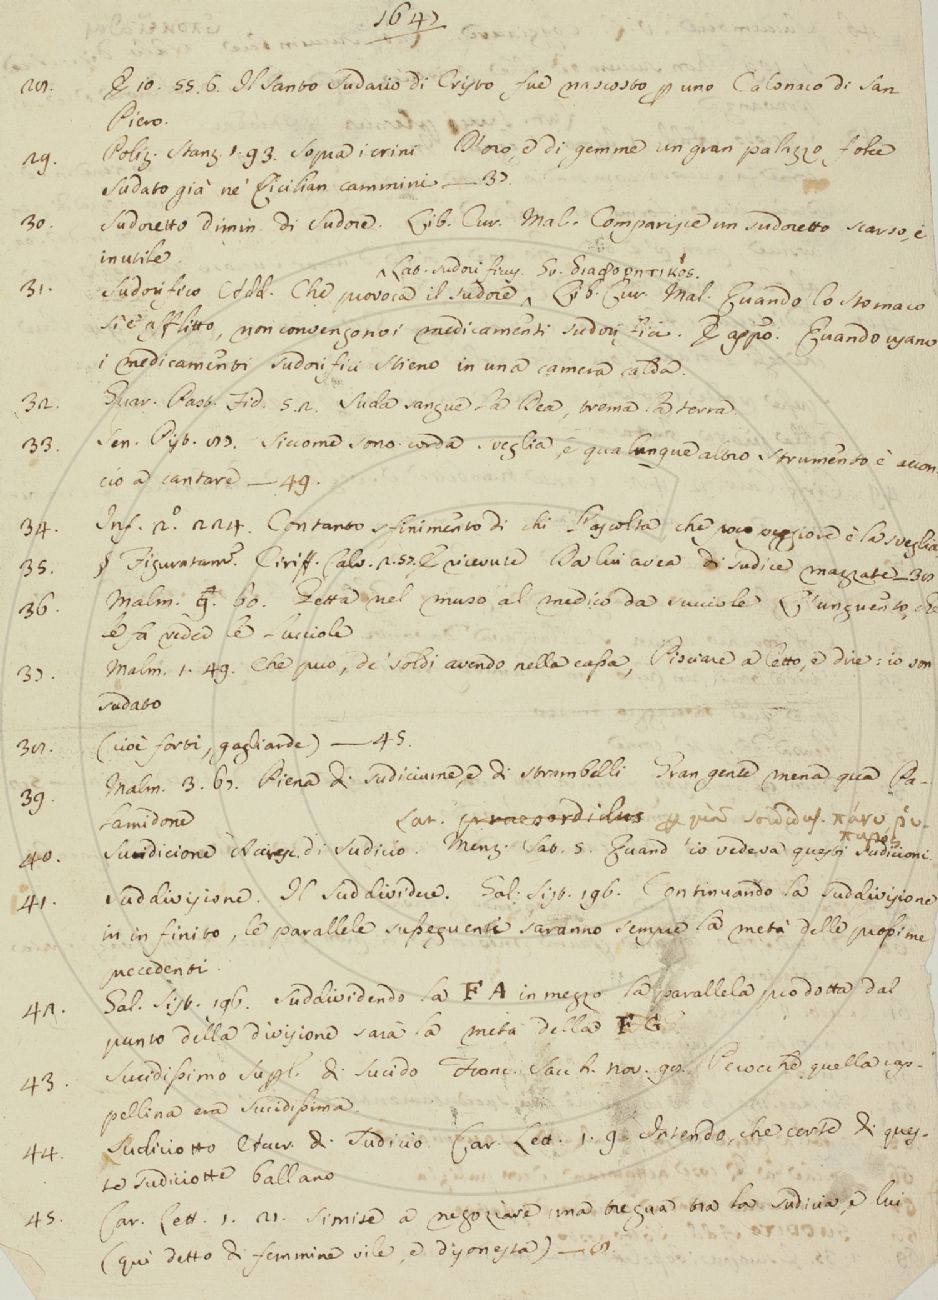 1647
28. E 10. 55. 6. Il Santo Sudario di Cristo fue nascosto p uno Calonaco di San
Piero.
29. Poliz. Stanz. 1. 93. Sopra i crini D'oro, e di gemme un gran palazzo folce
sudato già ne' Cicilian cammini — 37
30. Sudoretto dimin. di Sudore. Lib. Cur. Mal. Comparisce un sudoretto scarso, e
inutile.
Lat. sudorificus. Gr. διαφορητικός.
31. Sudorifico Add. Che provoca il sudore ^ Lib. Cur. Mal. Quando lo stomaco
si è afflitto, non convengono i medicamenti sudorifici. E appo. Quando usano
i medicamenti sudorifici stieno in una camera calda.
32. Guar. Past. Fid. 5. 2. Suda sangue la Dea, trema la terra
33. Sen. Pist. 87. Siccome sono corda sveglia, e qualunque altro strumento è accon-
cio a cantare — 49.
34. Inf. 2.° 224. Con tanto sfinimento di chi l'ascolta che poco peggiore è la sveglia
35. § Figuratam. Ciriff. Calv. 2. 57. E ricevute Da lui avea di sudice mazzate — 38
36. Malm. 9. 60. Getta nel muso al medico da succiole L'unguento, che
le fa veder le lucciole
37. Malm. 1. 49. Che può, de' soldi avendo nella cassa, Pisciare a letto, e dire: io son
sudato
38. (cioè forti, gagliarde) — 45.
39. Malm. 3. 67. Piena di sudiciume, e di strambelli Gran gente mena qua Pa-
lamidone
Lat. praesordidus sordidus. πάνυ ῥυ-
παρός
40. Sudicione Accresc. di Sudicio. Menz. Sat. 5. Quand' io vedeva questi Sudicioni.
41. Suddivisione. Il suddividere. Gal. Sist. 196. Continuando la suddivisione
in infinito, le parallele susseguenti saranno sempre la metà delle prossime
precedenti.
42. Gal. Sist. 196. Suddividendo la FA in mezzo la parallela prodotta dal
punto della divisione sarà la metà della FG
43. Sucidissimo Superl. di Sucido Franc. Sacch. nov. 98. Perocchè quella cap-
pellina era sucidissima.
44. Sudiciotto Accr. di Sudicio. Car. Lett. 1. 9. Intendo, che certe di ques-
te sudiciotte ballano
45. Car. Lett. 1. 21. Simise a negoziare una tregua tra la sudicia, e lui
(qui detto di femmine vile, e disonesta) —